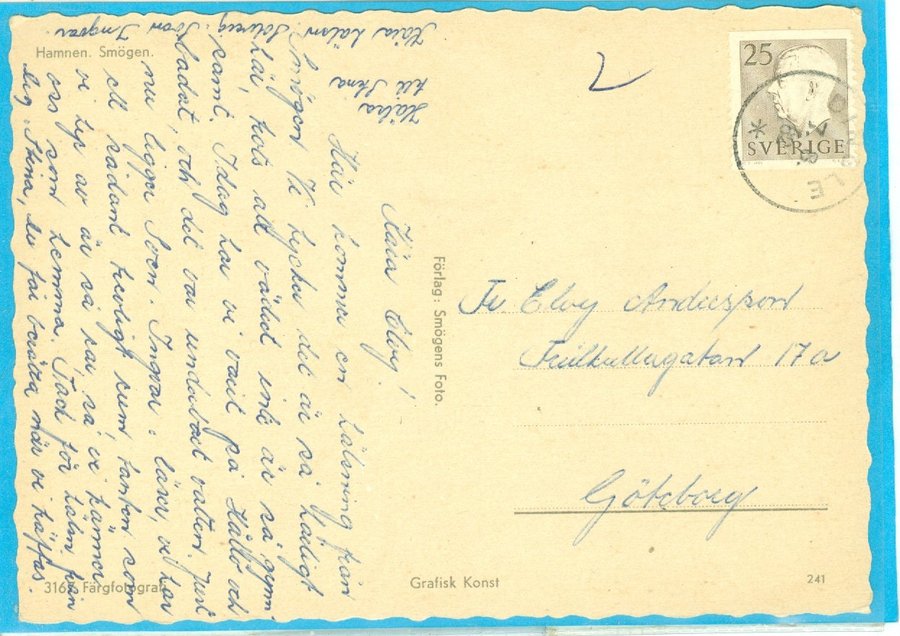 Hamnen. Smögen.
Kära Elvy!
Här kommer en hälsning från
Smögen. Vi tycker det är så härligt
här, trots att vädret inte är så gynn-
samt. Idag har vi varit på Hållö och
badat, och det var underbart vatten. Just
nu ligger Sven-Ingvar o läser, vi har
ett sådant trevligt rum tanten som
vi hyr av är så rar, så vi känner
oss som hemma. Tack för
dig. Stina, du får berätta när vi träffas.
Hälsa
till Stina
Kära hälsn. Solveig Sven Ingvar.
Förlag: Smögens Foto.
25
SVERIGE
Fr. Elvy Andersson
17a
Göteborg
316 Färgfotografi
Grafisk Konst
241